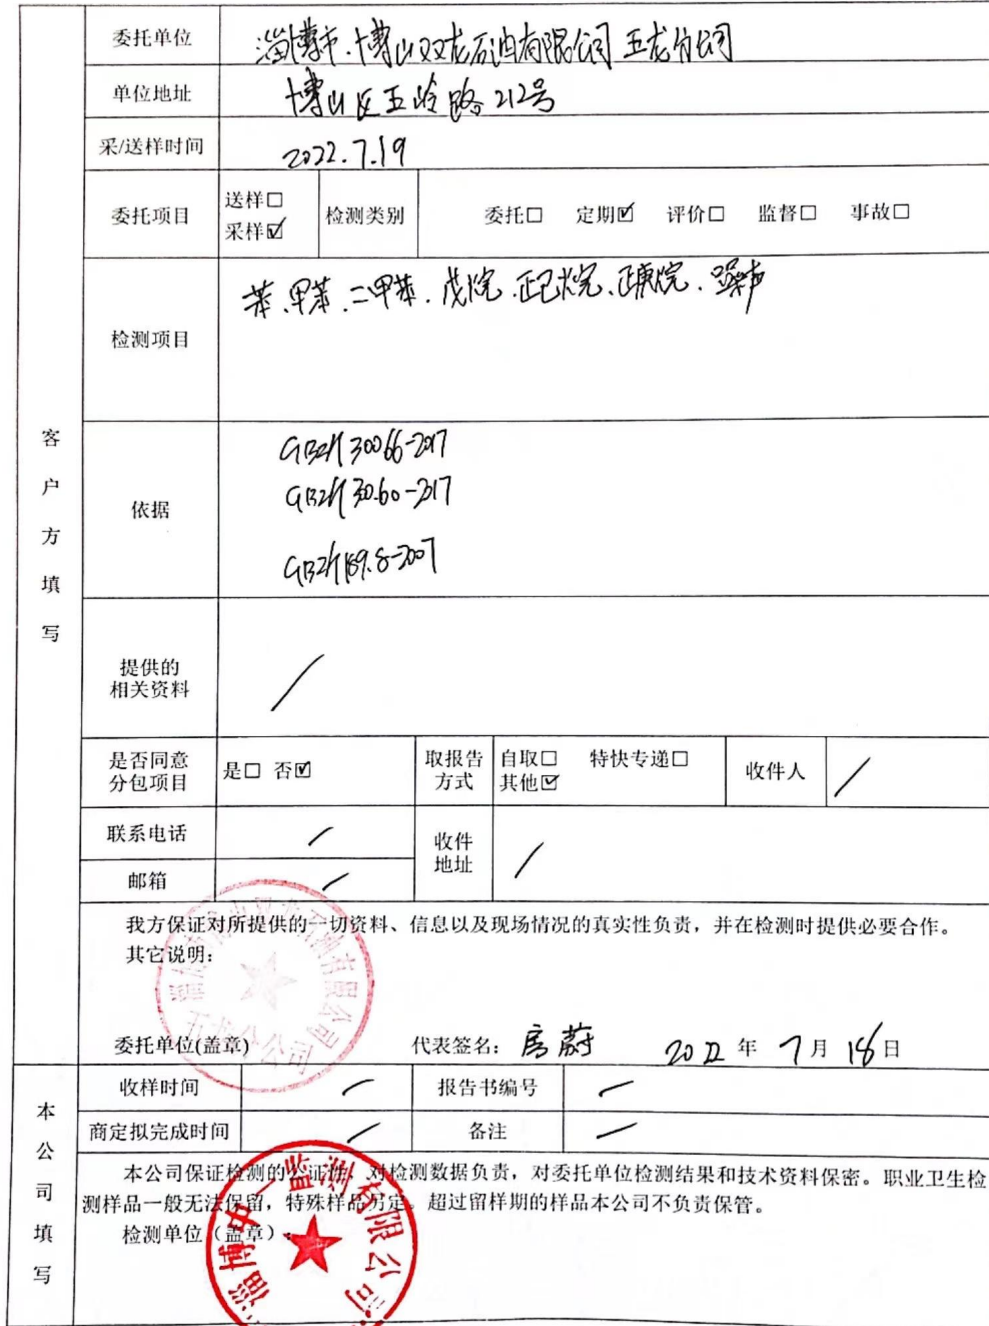 委托单位 淄博市博山双龙石油有限公司五龙分公司
单位地址 博山区五岭路212号
采/送样时间 2022.7.19
委托项目 送样□ 采样☑ 检测类别 委托□ 定期☑ 评价□ 监督□ 事故□
检测项目 苯、甲苯、二甲苯、戊烷、正己烷、正庚烷、噪声
客户方填写
依据
GBZ/T 300.66-2017
GBZ/T 300.60-2017
GBZ/T 189.8-2007
提供的
相关资料 /
是否同意
分包项目 是□ 否☑ 取报告
方式 自取□ 特快专递□
其他☑ 收件人 /
联系电话 / 收件
地址 /
邮箱 /
我方保证对所提供的一切资料、信息以及现场情况的真实性负责，并在检测时提供必要合作。
其它说明：
委托单位(盖章) 代表签名：房蔚 2022年7月18日
本公司填写
收样时间 / 报告书编号 /
商定拟完成时间 / 备注 /
本公司保证检测的公证性，对检测数据负责，对委托单位检测结果和技术资料保密。职业卫生检
测样品一般无法保留，特殊样品另定。超过留样期的样品本公司不负责保管。
检测单位（盖章）：
淄博中一监测有限公司